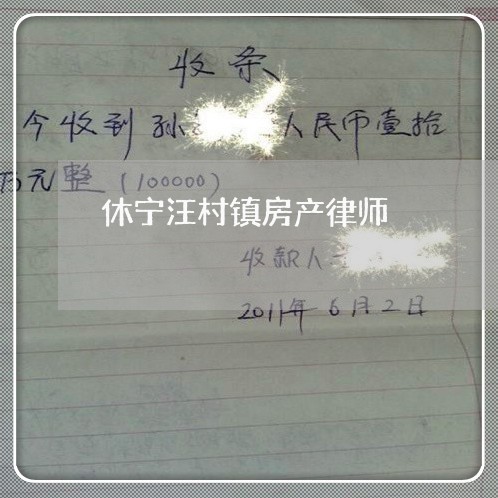 收条
今收到孙 人民币壹拾
万元整（100000）
休宁汪村镇房产律师
收款人
2011年6月2日